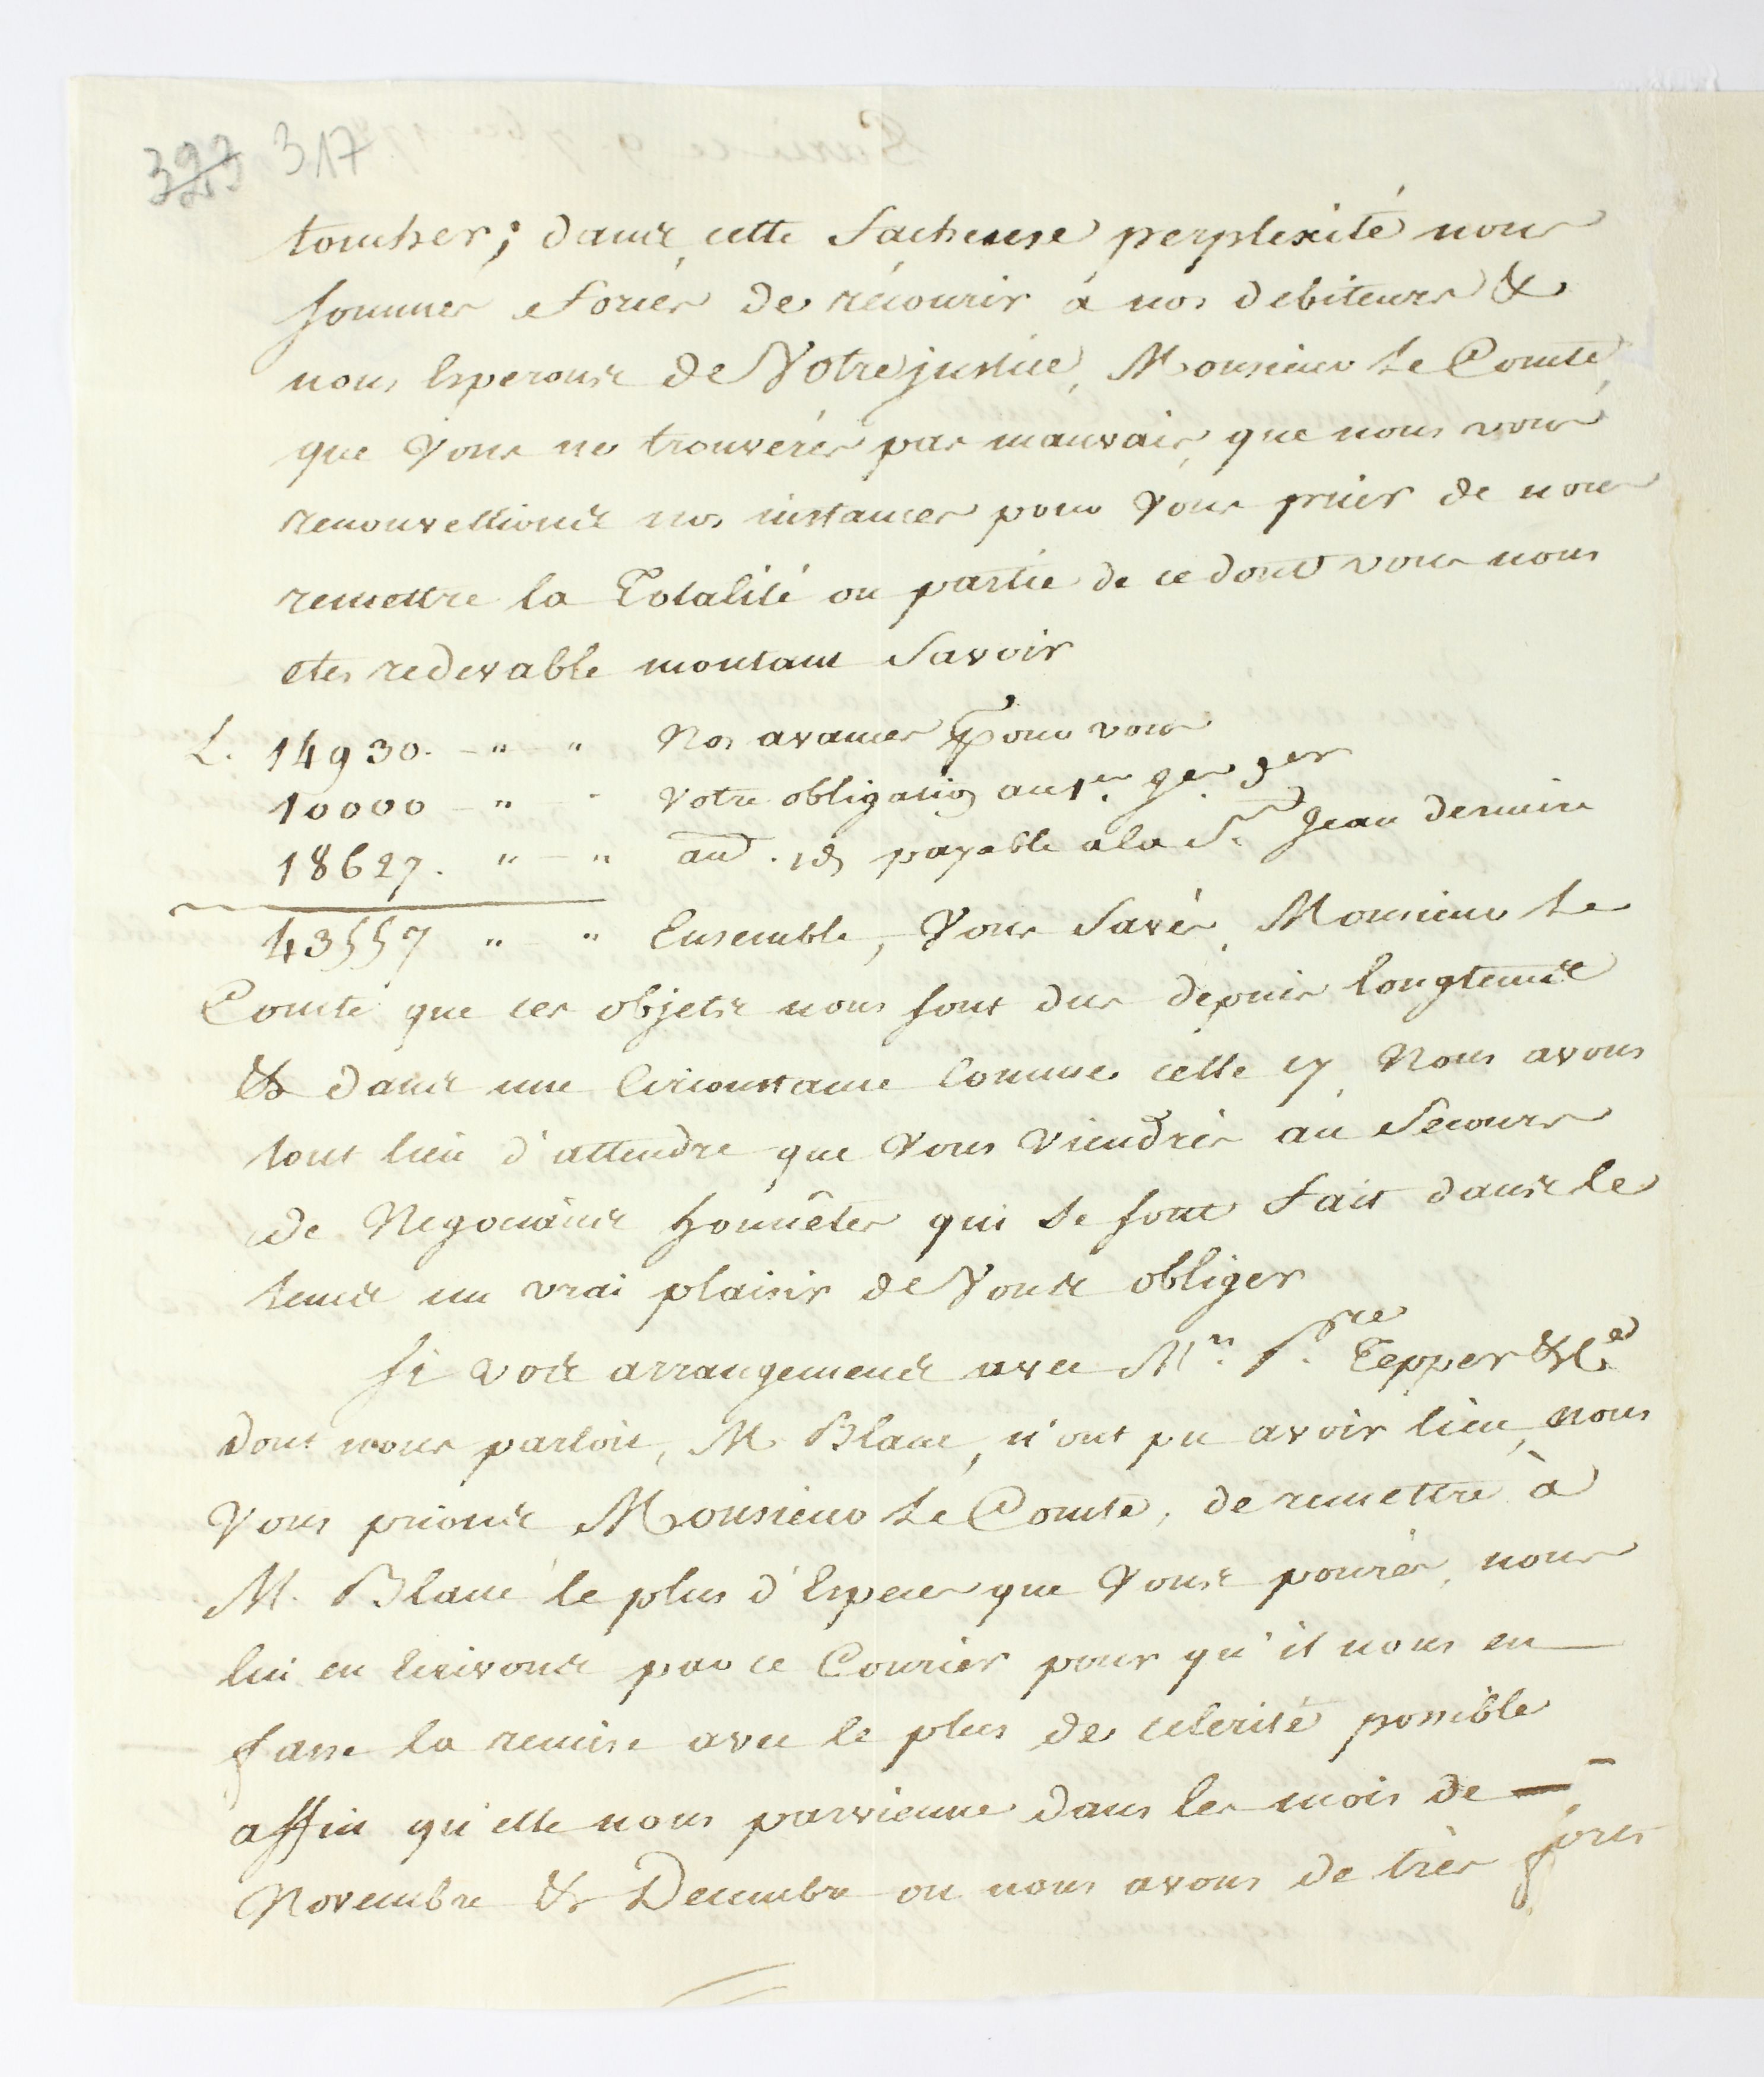 329 317
toucher; dans cette facheuse perplexité nous
sommes forcés de récourir à nos debiteurs &
nous Esperons de Votre justice, Monsieur Le Comte,
que Vous ne trouverés pas mauvais, que nous vous
renouvellions nos instances pour Vous prier de nous
remettre la Totalité ou partie de ce dont vous nous
etes redevable montant Savoir
L. 14930. - " - " Nos avances pour vous
10000 - " - " Votre obligation au 1er. Jer
18627. " - " aud. id payable a la St. Jean derniere
43557 " - " Ensemble, Vous Savés, Monsieur Le
Comte que ces objets nous sont dus depuis longtems
& dans une Circonstance Comme celle cy, Nous avons
tout lieu d'attendre que Vous viendrés au Secours
de Negocians honnêtes qui se sont fait dans le
tems un vrai plaisir de Vous obliger
Si vos arrangemens avec Mrs. Pre Tepper & Ce
dont nous parloit, M. Blanc, n'ont pu avoir lieu, nous
Vous prions Monsieur Le Comte, de remettre à
M. Blanc le plus d'Especes que Vous pourés, nous
lui en Ecrivons par ce Courier pour qu'il nous en
fasse la remise avec le plus de celerité possible
affin qu'elle nous parvienne dans les mois de
Novembre & Decembre ou nous avons de très forts